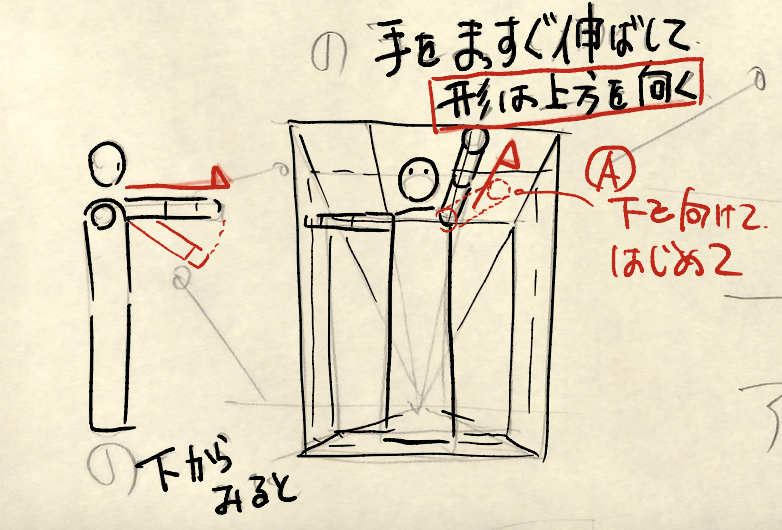 手をまっすぐ伸ばして
形は上方を向く
A
下を向けて
はじめて
下から
みると